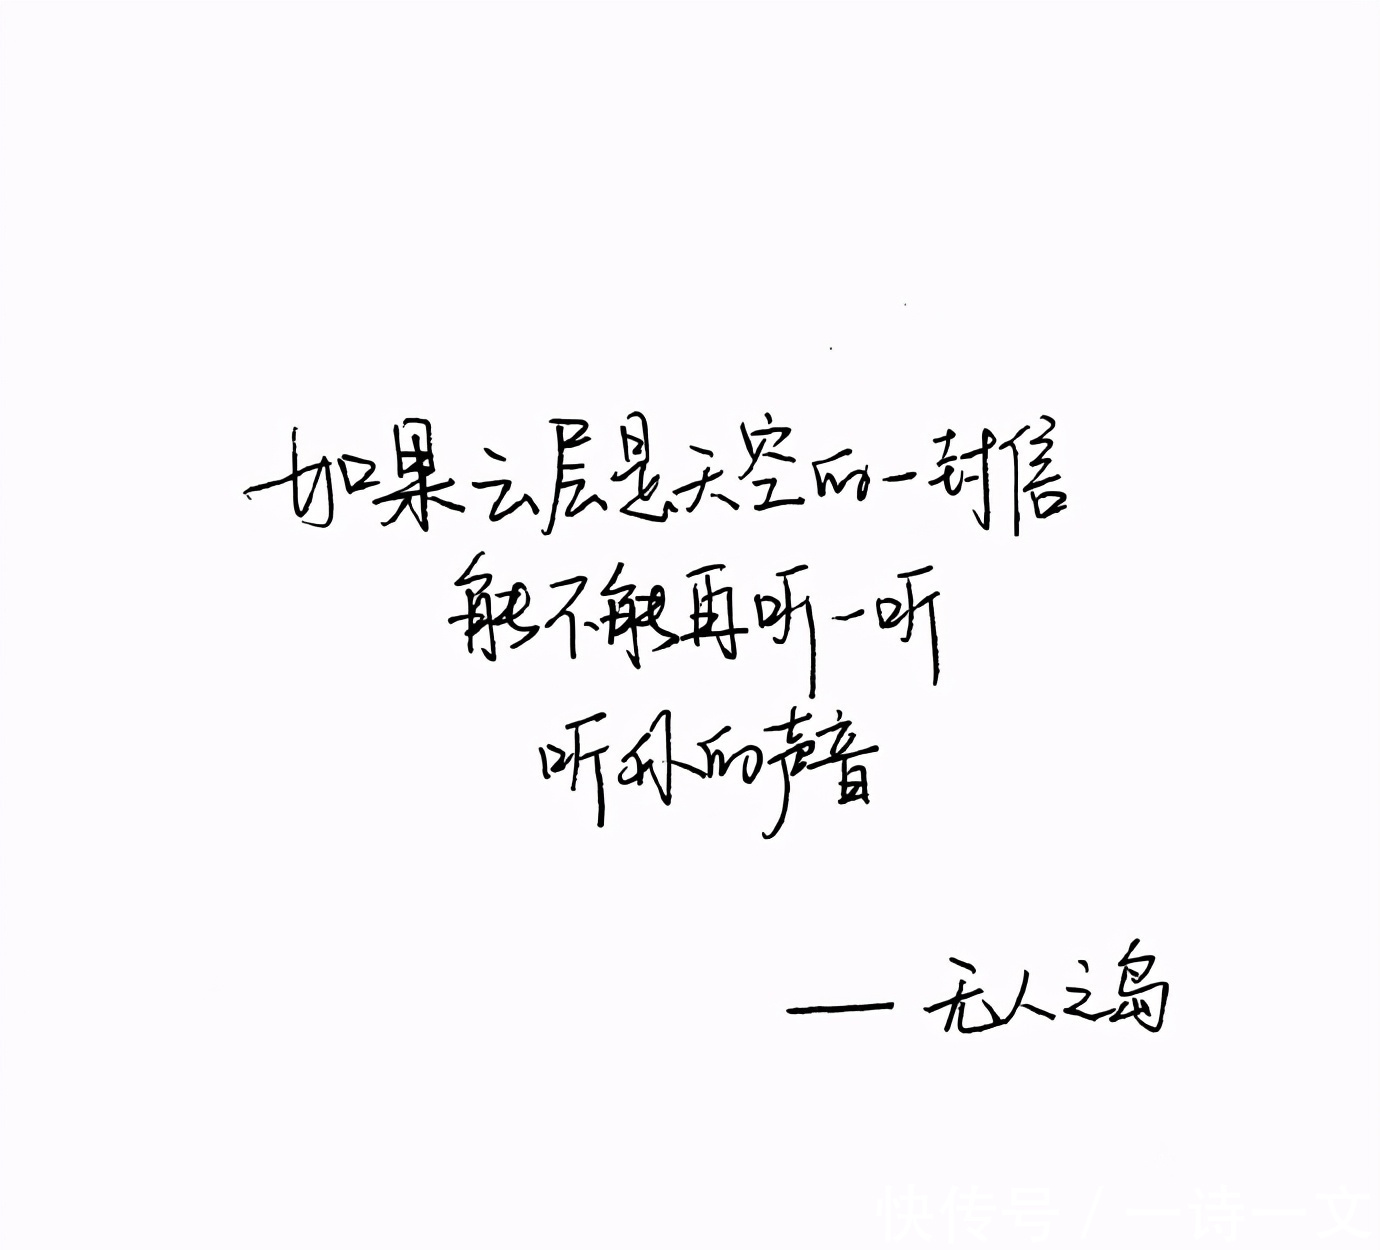 如果云层是天空的一封信
能不能再听一听
听你的声音
—— 无人之岛
快传号 / 一诗一文